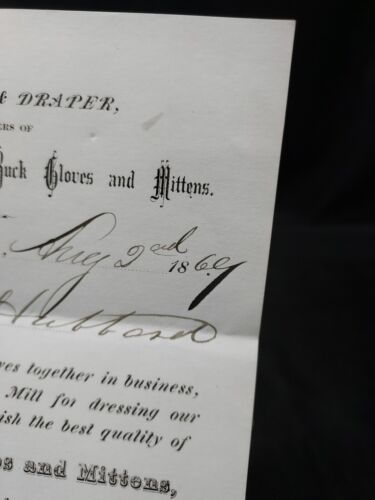 & DRAPER,
ERS OF
Buck Gloves and Mittens.
Aug 2nd 1869
Hubbard
ves together in business,
Mill for dressing our
ish the best quality of
es and Mittens,